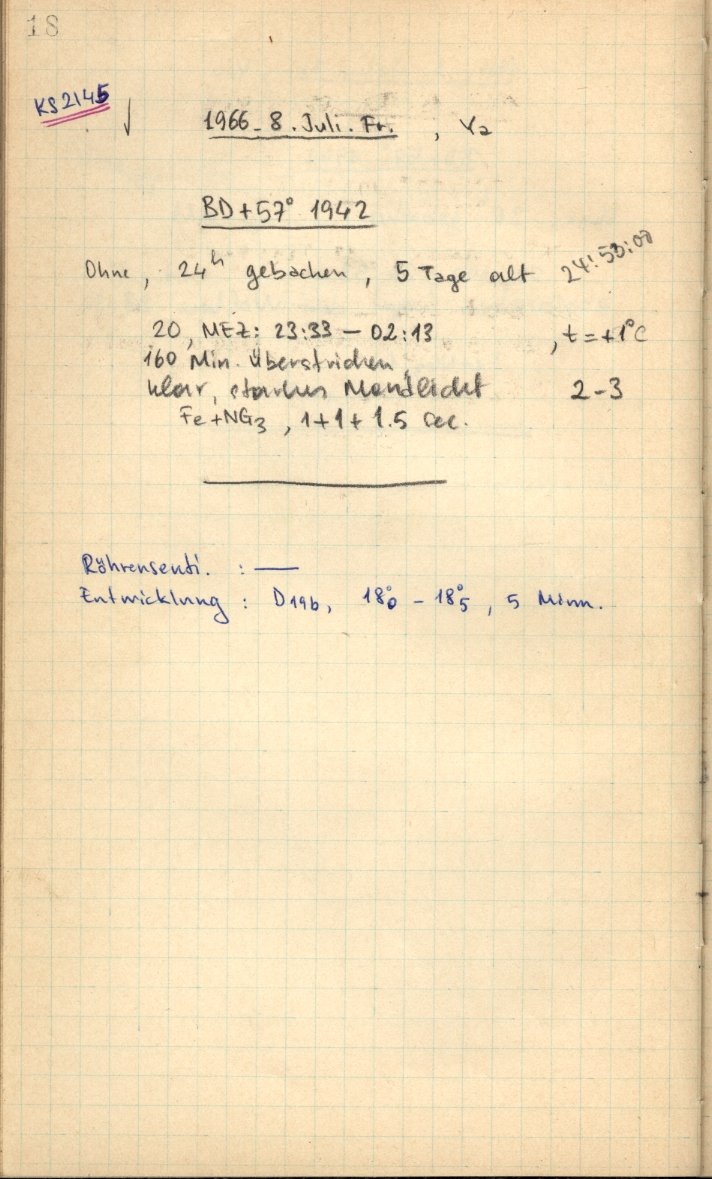 18
KS2145 ↓ 1966-8.Juli.Fr. , Y2
BD+57° 1942
Ohne, 24h gebachen, 5 Tage alt 24:53:00
20, MEZ: 23:33 — 02:13 , t=+1°C
160 Min. Überstrichen
klar, starkes Mondlicht 2-3
Fe+NG3, 1+1+1.5 sec.
Röhrensenti. : —
Entwicklung : D19b, 18°0 - 18°5, 5 Minn.